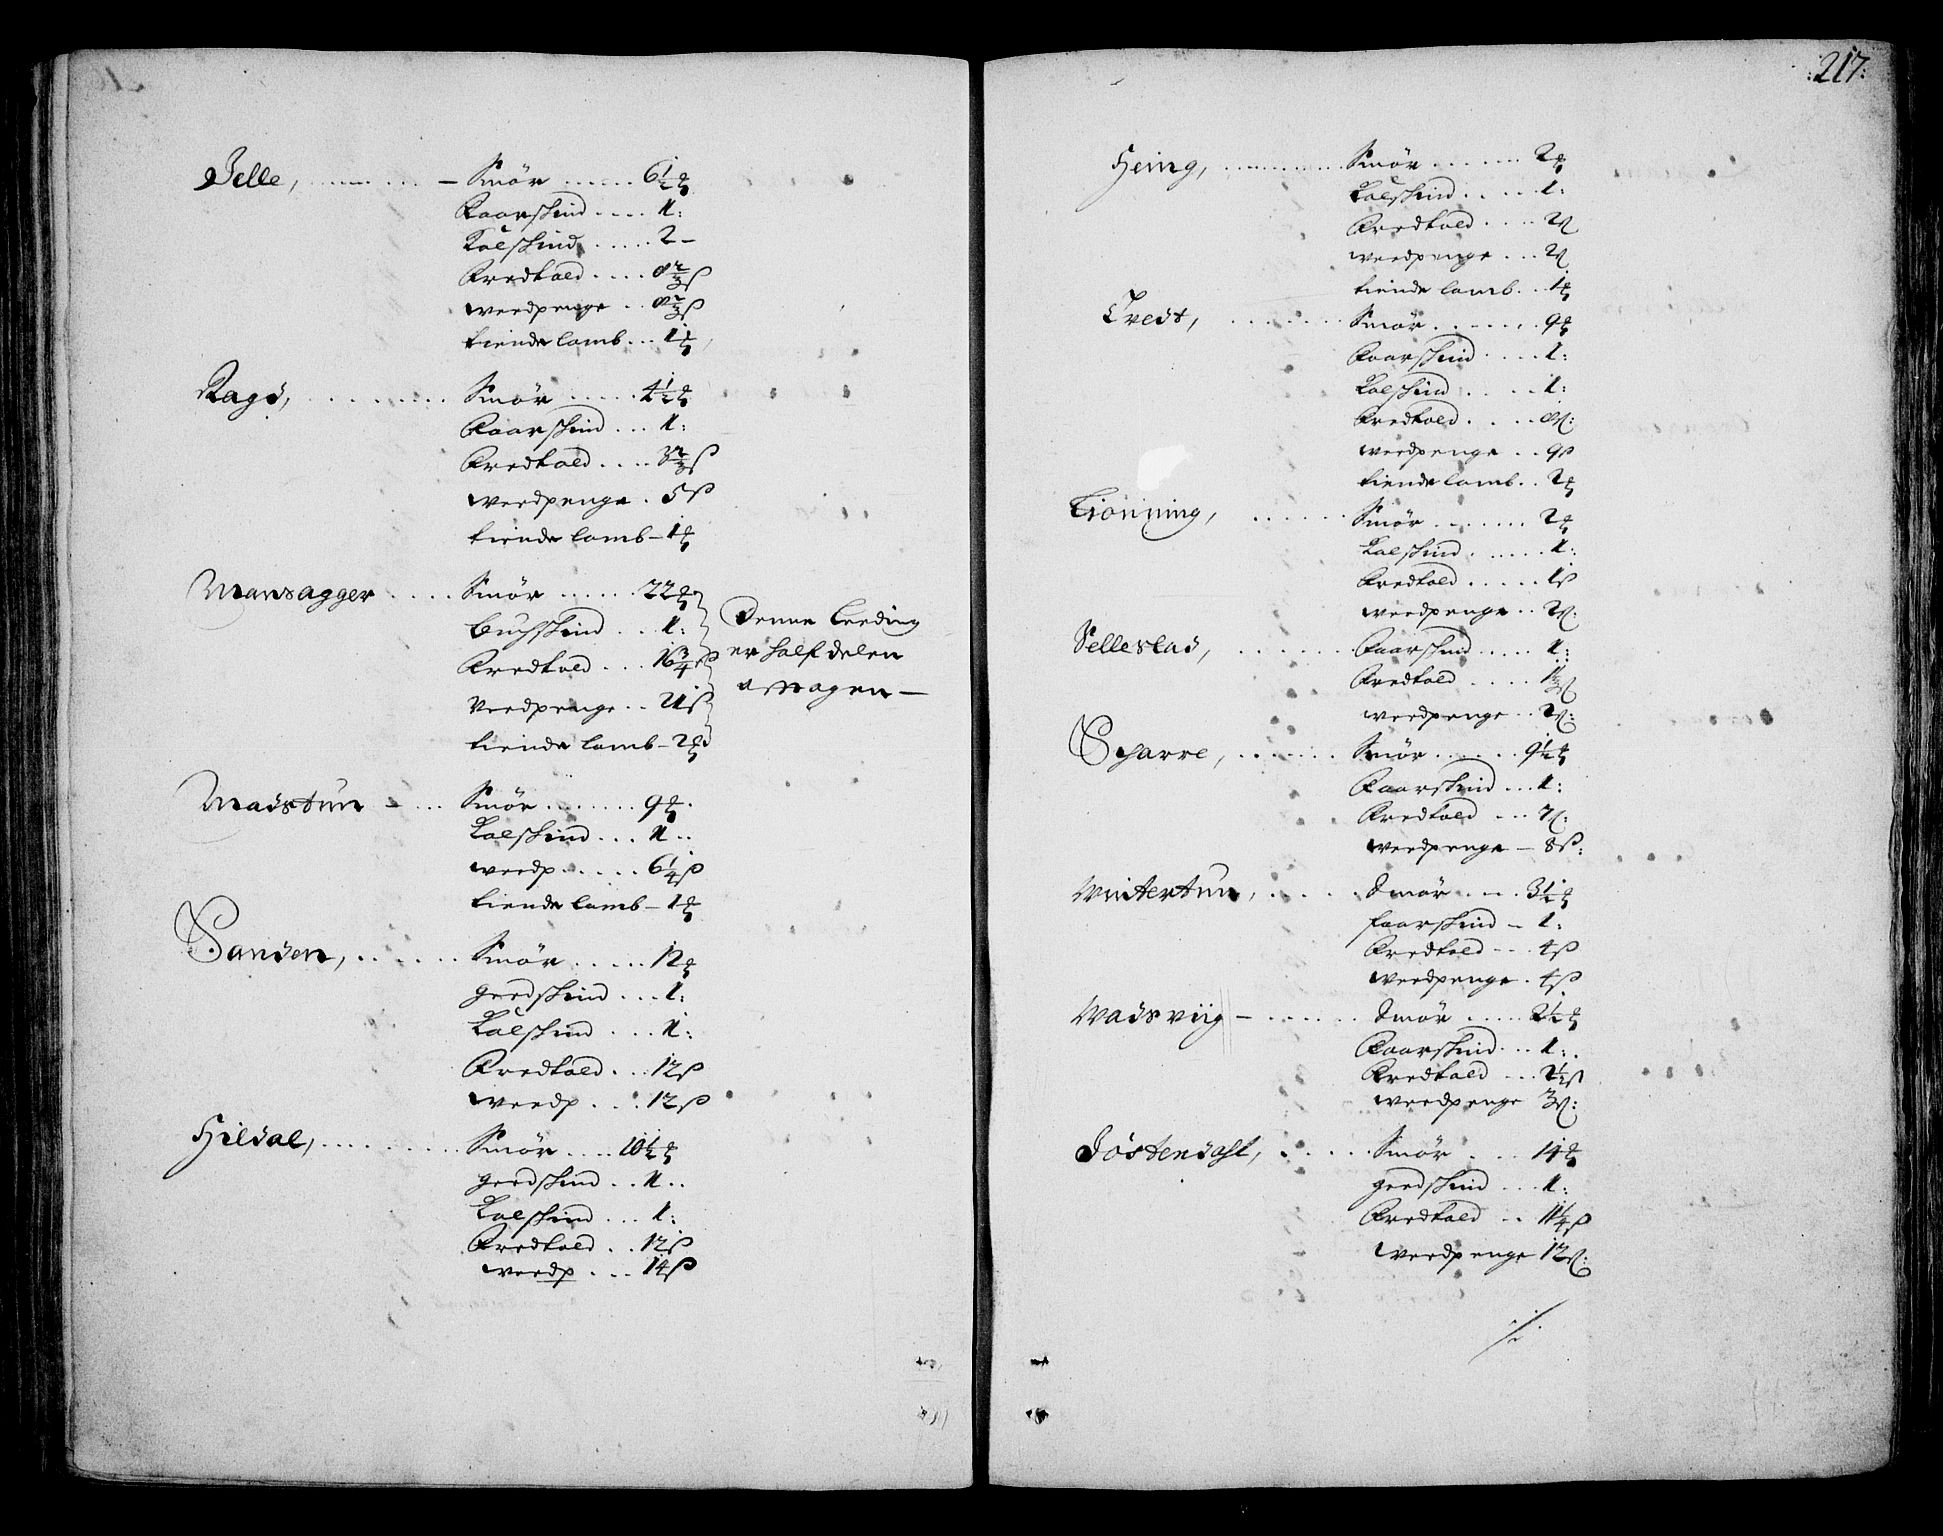 Jelle, - Smör 6½ ℔
Faarskind 1:
Kalfskind 2 -
Kredtold 8⅔ ß
weedpenge 8⅔ ß
tiende lamb 1½
Ragd, Smör 4½ ℔
Faarskind 1:
Kredtold 3⅔ ß
weedpenge 5 ß
tiende lamb - 1 ℔
Mansagger Smör 22 ℔
Buchskind 1:
Kredtold 16¾ ß
Veedpenge 21 ß
tiende lamb - 2 ℔
Denne leeding
er halfdelen
afftagen -
Madstun - Smör 9 ℔
Kalfskind 1
weedp 6¼ ß
tiende lamb - 1 ℔
Sanden, Smör 12 ℔
geedskind 1:
Kalfskind 1:
Kredtold 12 ß
weedp 12 ß
Hildal, Smör 10½ ℔
geedskind 1
Kalfskind 1:
Kredtold 12 ß
weedp 14 ß
:217:
Heing, Smör 2 ℔
Kalfskind 1:
Kredtold 2 ß
weedpenge 2 ß
tiende lamb 1 ℔
Tvedt, Smör 9 ℔
Faarskind 1:
Kalfskind 1:
Kredtold 8 ß:
weedpenge 9 ß
tiende lamb 2 ℔
Tionning, Smör 2 ℔
Kalfskind 1:
Kredtold 1 ß
weedpenge 2 ß:
Sellestad, Faarskind 1:
Kredtold
weedpenge 2 ß:
Scharre, Smör 9½ ℔
Faarskind 1:
Kredtold 7 ß:
weedpenge - 8 ß:
Wintertun, Smör 3½ ℔
faarskind - 1:
Kredtold 4 ß
weedpenge 4 ß
Wadsviig - Smör 2½ ℔
Faarskind 1:
Kredtold 2½ ß
weedpenge 3 ß:
Jöstendahl, Smör 14 ℔
geedskind 1:
Kredtold 11¼ ß
weedpenge 12 ß: